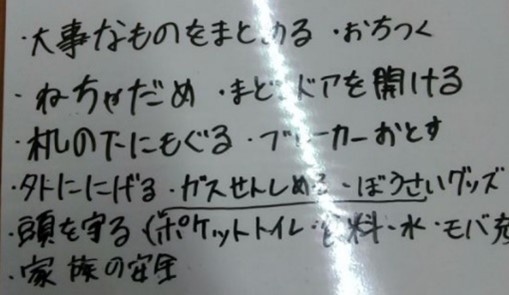 ・大事なものをまとめる ・おちつく
・ねちゃだめ ・まど ドアを開ける
・机の下にもぐる ・ブレーカーおとす
・外ににげる ・ガスせんしめる ・ぼうさいグッズ
・頭を守る (ポケットトイレ・料・水・モバ充
・家族の安全